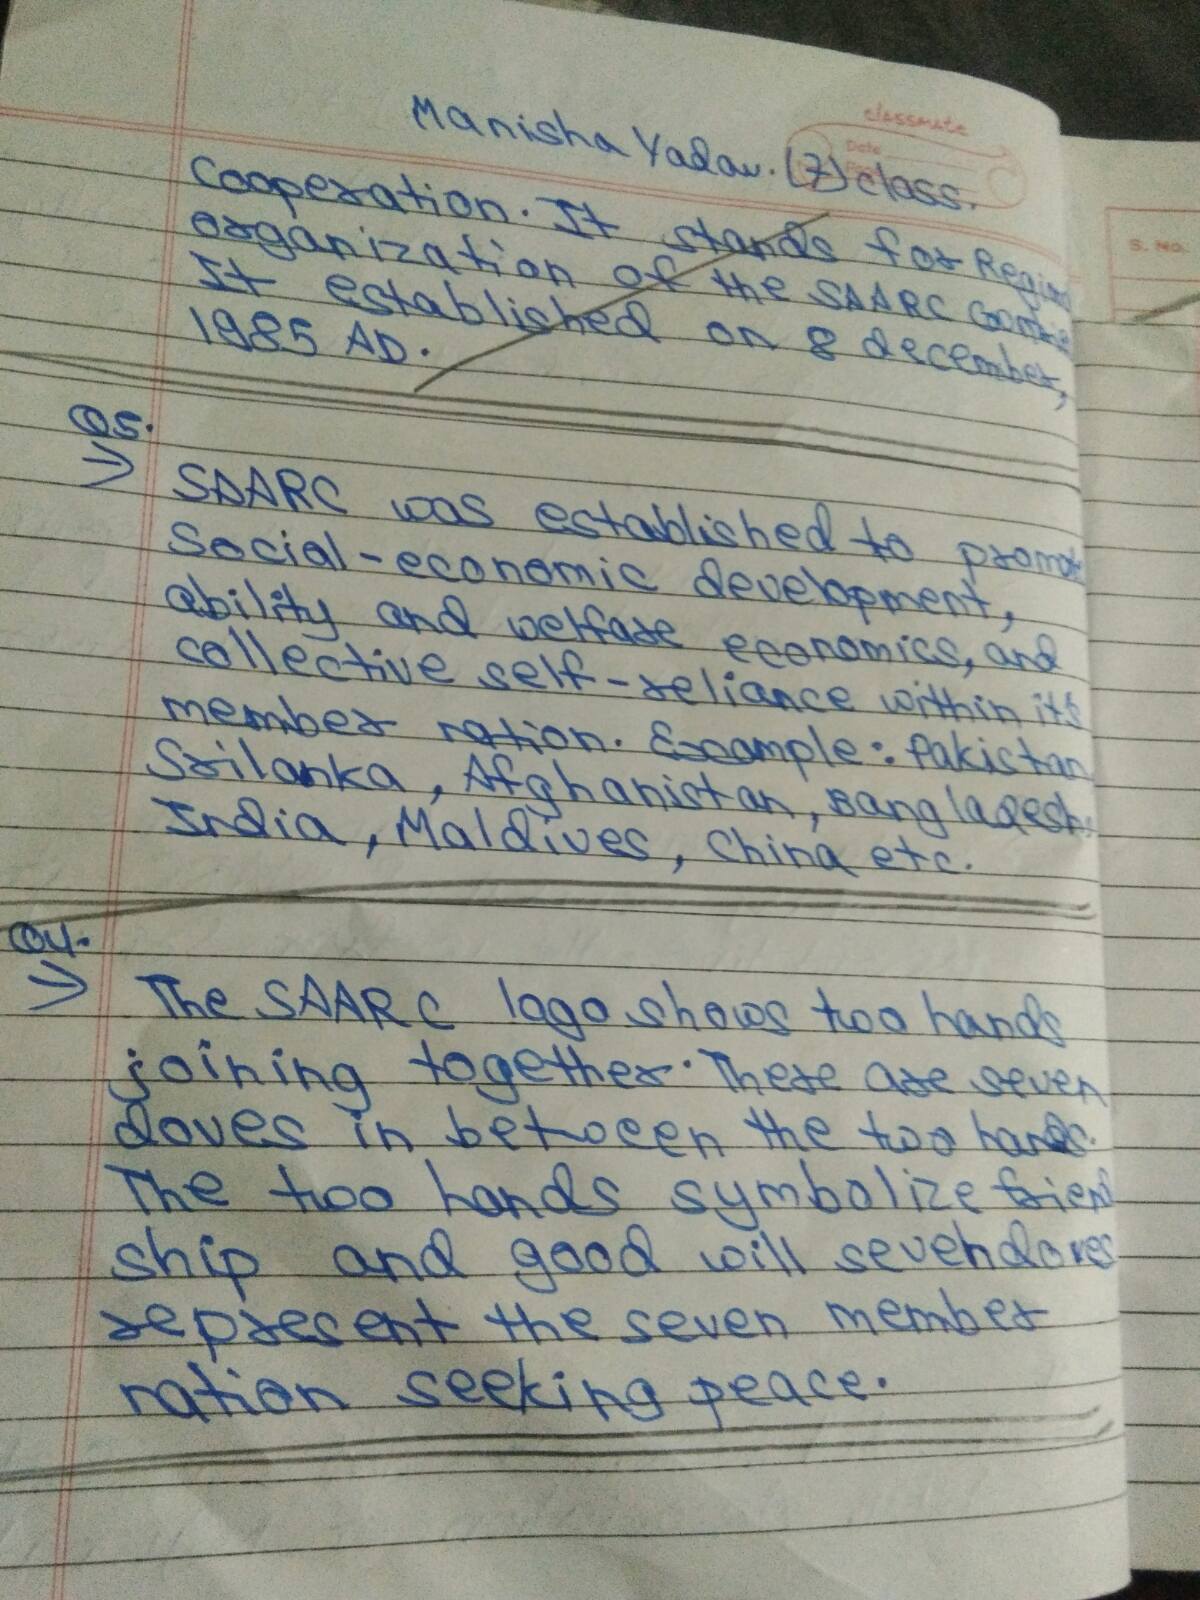 classmate
Date
Manisha Yadav. (7) class.
Cooperation. It stands for Region
organization of the SAARC
It established on 8 december,
1985 AD.
S. No.
Q5.
→ SAARC was established to promote
Social-economic development,
ability and welfare economics, and
collective self-reliance within its
member nation. Example: Pakistan
Srilanka, Afghanistan, Bangladesh.
India, Maldives, China etc.
Q4.
→ The SAARC logo shows two hands
joining together. There are seven
doves in between the two hands.
The two hands symbolize friend
ship and good will seven doves
represent the seven member
nation seeking peace.